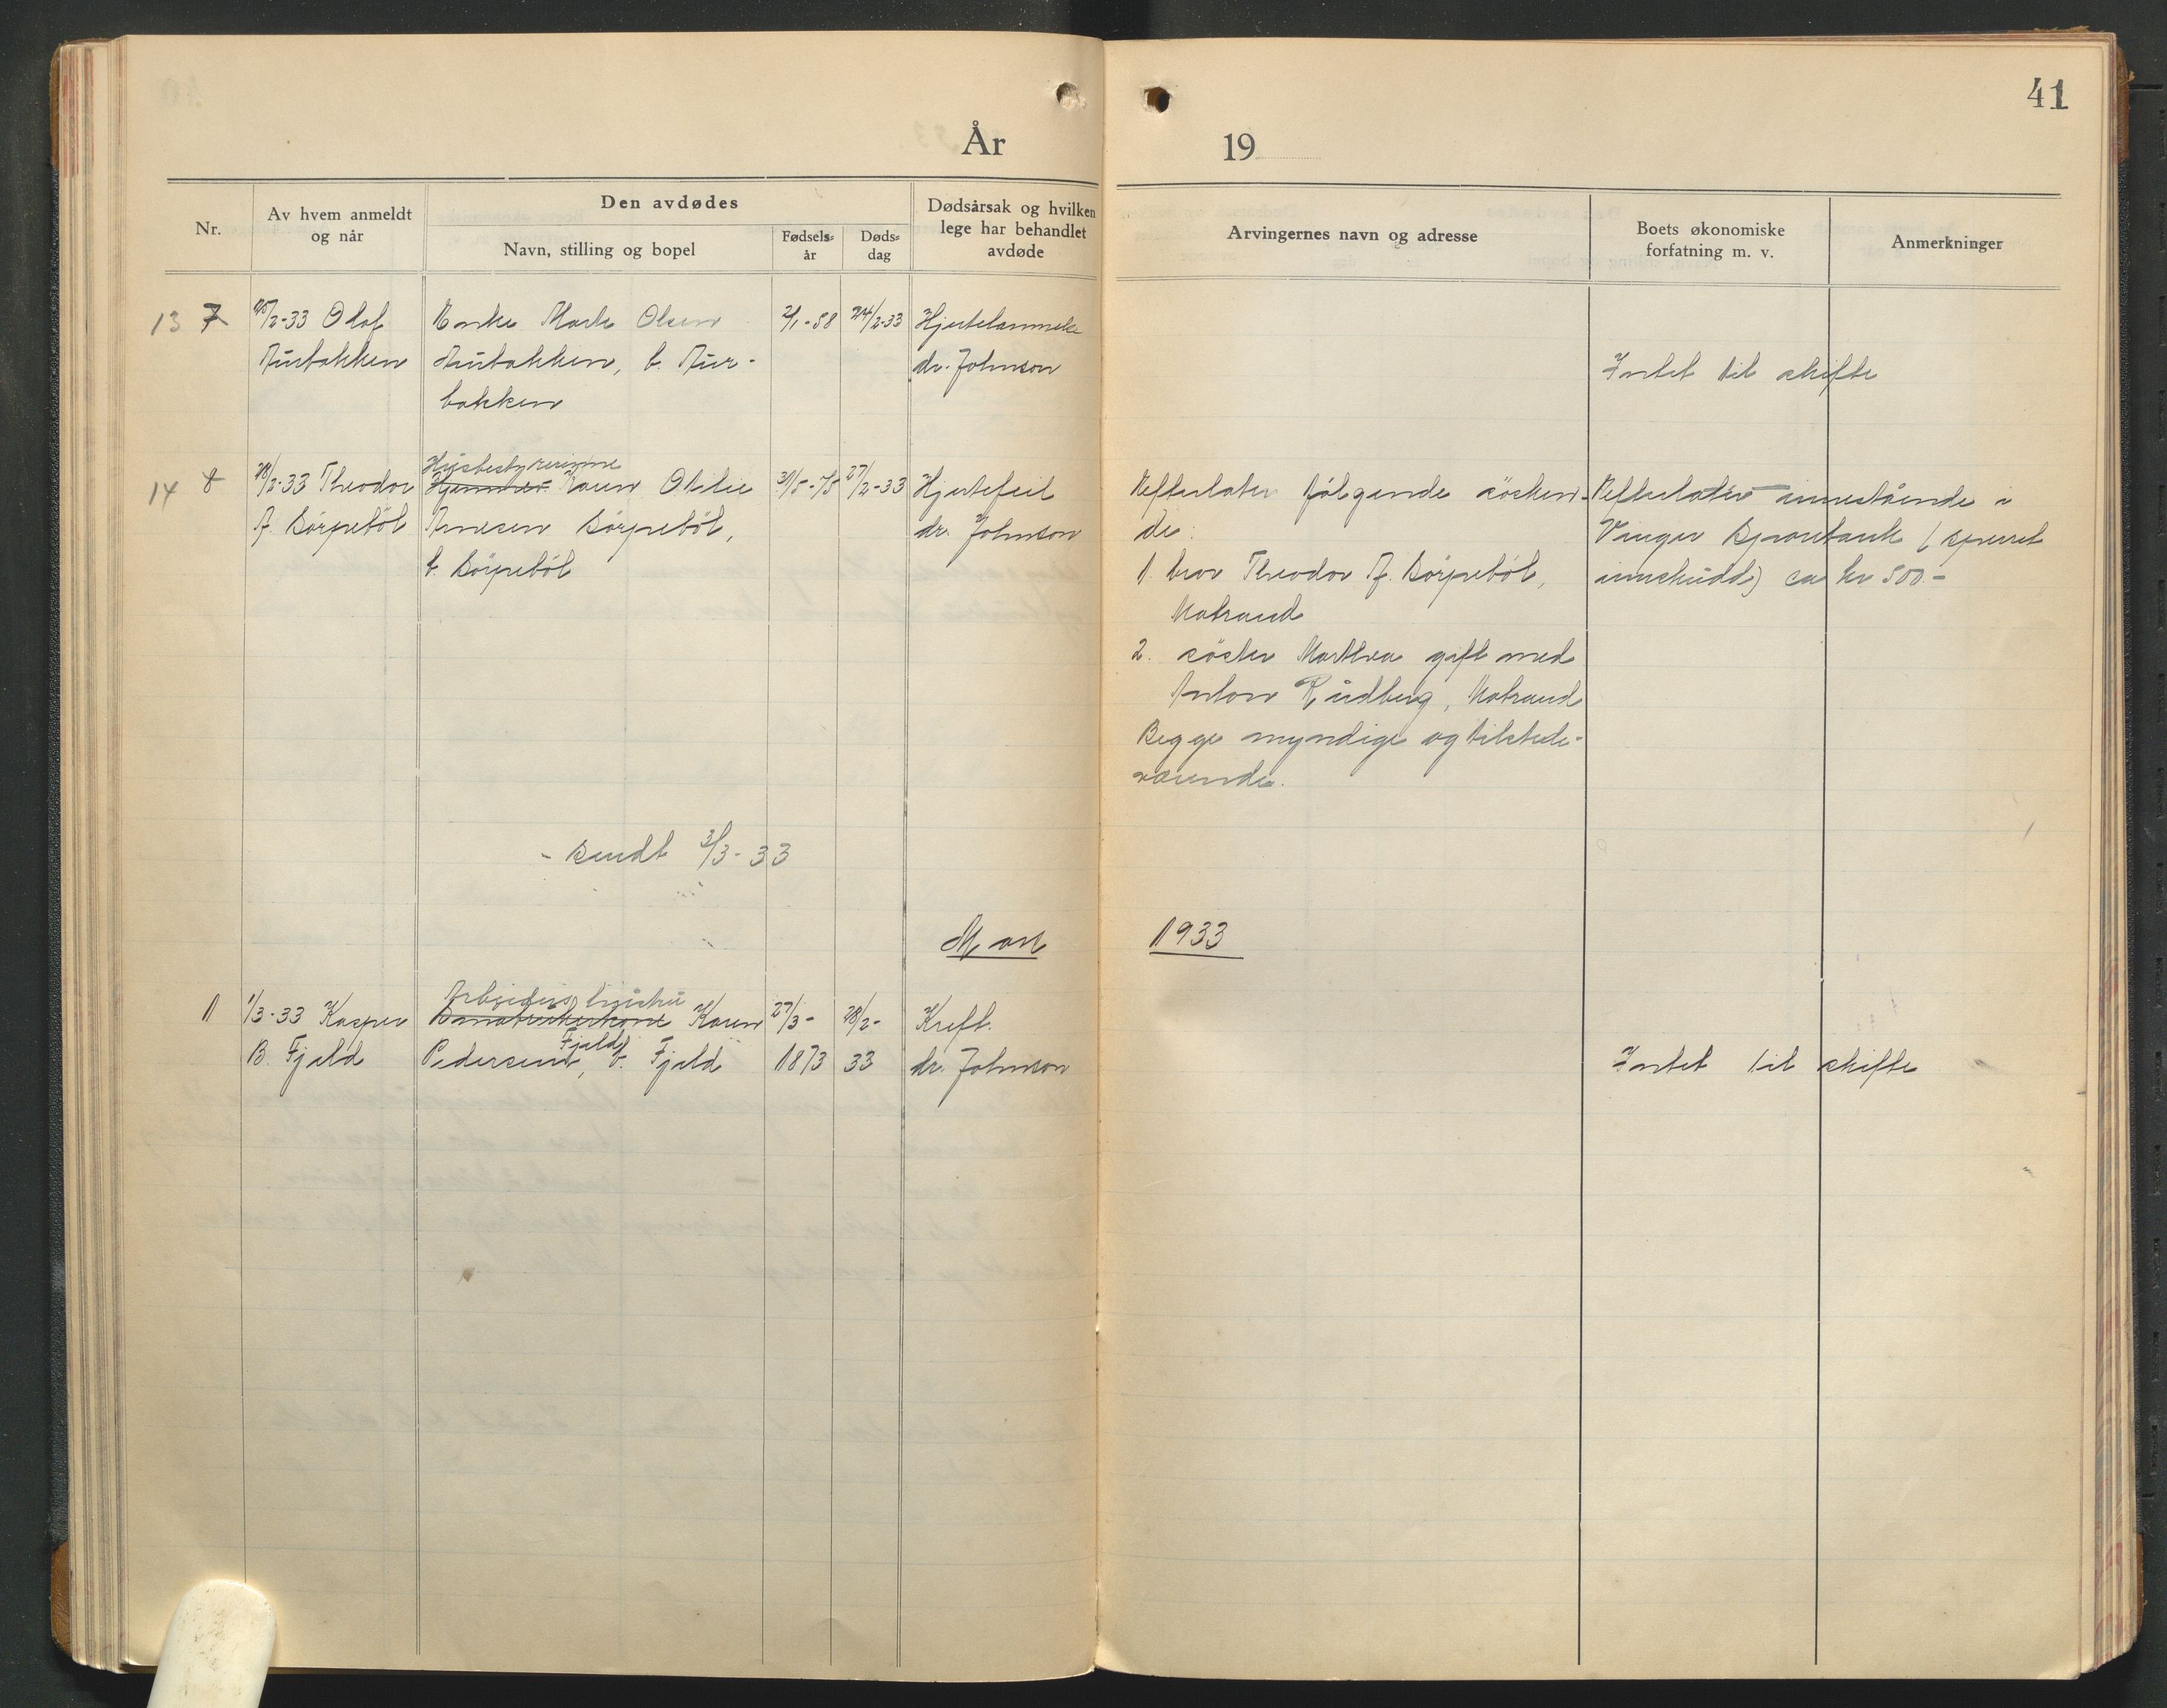 41
År 19
Nr.
Av hvem anmeldt og når
Den avdødes
Navn, stilling og bopel
Fødsels= år
Døds= dag
Dødsårsak og hvilken lege har behandlet avdøde
Arvingernes navn og adresse
Boets økonomiske forfatning m. v.
Anmerkninger
13 7
25/2-33 Olaf
Aurbakken
Enke Marte Olsen
Aurbakken, b. Aur-
bakken
2/1-58
24/2-33
Hjertelammelse
dr. Johnson
Intet til skifte
14 8
28/2-33 Theodor
A. Börpeböl
Husbestyrerinne
Karen Otilie
Arnesen Börpeböl,
b. Börpeböl
31/5-75
27/2-33
Hjertefeil
dr. Johnson
Efterlater følgende söskende-
de:
1. bror Theodor A. Börpeböl,
Matrand
2. söster Marthea gift med
Anton Rudberg, Matrand
Begge myndige og tilstede-
værende.
Efterlater innestående i
Vinger Sparebank (sperret
innskudd) ca kr 500.-
- sendt 3/3-33
Mars 1933
1
1/3-33 Kasper
B. Fjeld
Arbeiders hustru
Karen
Fjeld
Pedersen, b. Fjeld
27/3-
1873
28/2-
33
Kreft.
dr. Johnson
Intet til skifte